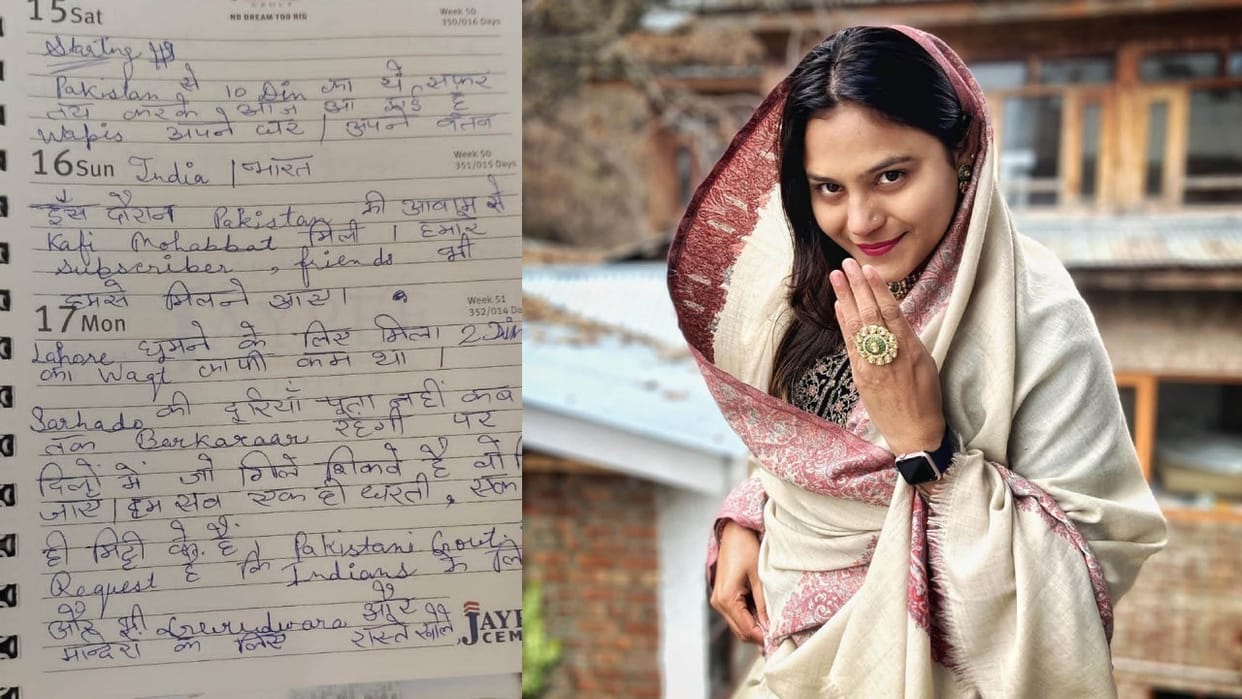 15 Sat
GROUP
NO DREAM TOO BIG
Week 50
350/016 Days
Starting
Pakistan से 10 Din का ये सफर
तय करके आज आ गई है
Wapis अपने घर | अपने वतन
16 Sun India | भारत
Week 50
351/015 Days
इस दौरान Pakistan की आवाम से
Kafi Mohabbat मिली | हमारे
subscriber, friends भी
हमसे मिलने आए |
17 Mon
Week 51
352/014 Da
Lahore घूमने के लिए मिला 2 Din
का Waqt काफी कम था |
Sarhado की दूरियाँ पता नहीं कब
तक Barkaraar रहेगी पर
दिलों में जो गिले शिकवे है वो
जाए | हम सब एक ही धरती, एक
ही मिट्टी के है | Pakistani Govt.
Request है कि Indians के लि
और भी Gurudwara और
मन्दिरों के लिए रास्ते खोले
JAYP
CEM